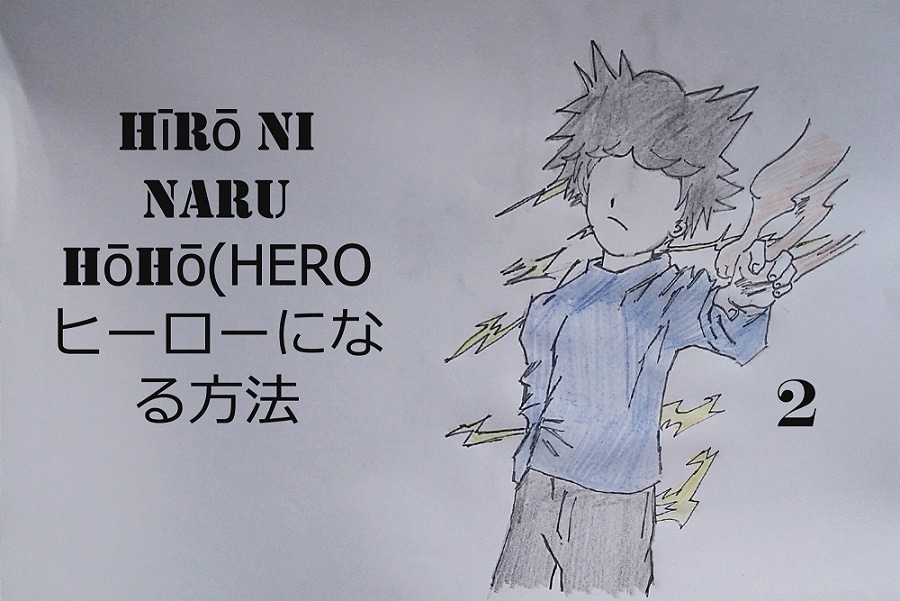 HīRō NI
NARU
HōHō(HERO
ヒーローにな
る方法
2